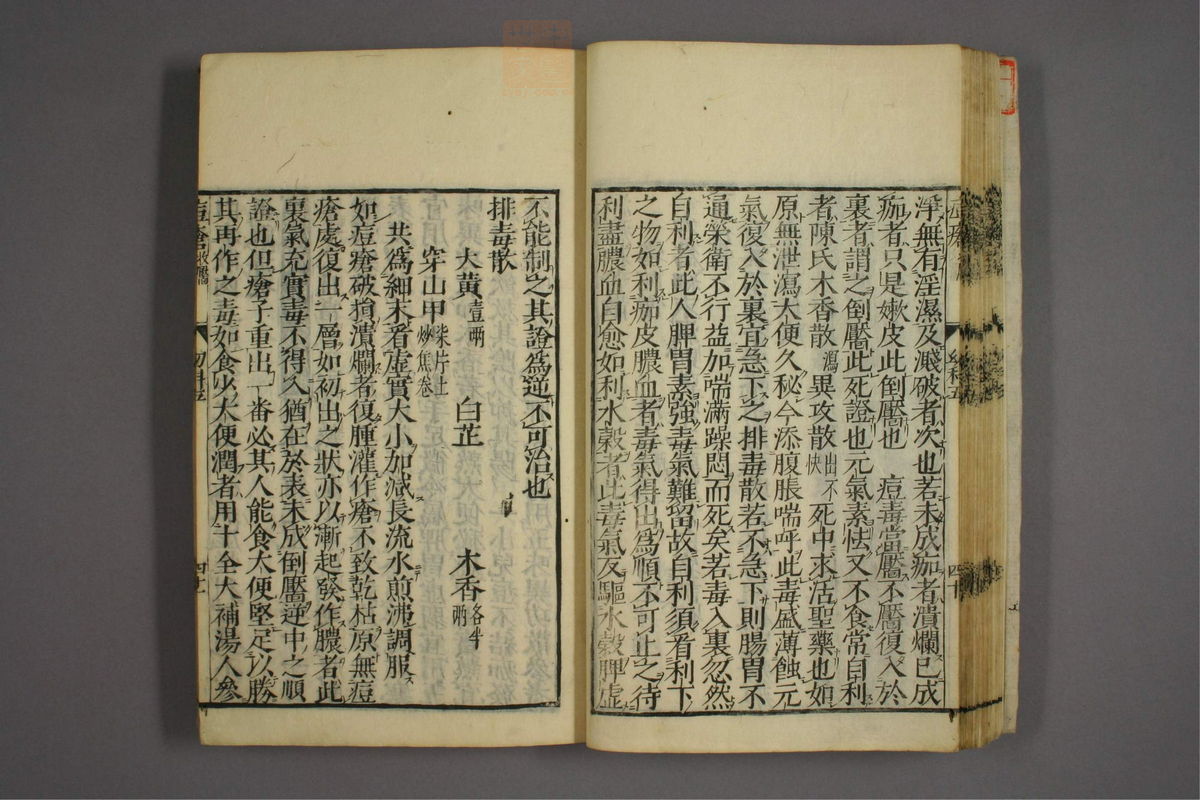 淨無有淫濕及濺破者次也若未成痂者潰爛巳成
痂者只是嫩皮此倒靨也　痘毒當靨不靨復入於
裏者謂之倒靨此死證也元氣素怯又不食常自利
者陳氏木香散瀉異攻散出不快死中求活聖藥也如
原無泄瀉大便久秘今添腹脹喘呼此毒盛薄蝕元
氣復入於裏宜急下之排毒散若不急下則腸胃不
通榮衛不行益加喘滿躁悶而死矣若毒入裏忽然
自利者此人脾胃素強毒氣難留故自利須看利下
之物如利痂皮膿血者毒氣得出為順不可止之待
利盡膿血自愈如利水穀者此毒氣反驅水穀脾虛
不能制之其證為逆不可治也
排毒散
大黃壹兩　白芷　木香各半兩
穿山甲柒片土炒焦卷
共為細末看虛實大小加減長流水煎沸調服
如痘瘡破損潰爛者復腫灌作瘡不致乾枯原無痘
瘡處復出一層如初出之狀亦以漸起發作膿者此
裏氣充實毒不得入猶在於表未成倒靨逆中之順
證也但瘡子重出一番必其人能食大便堅足以勝
其再作之毒如食少大便潤者用十全大補湯人參
幼科五
四十